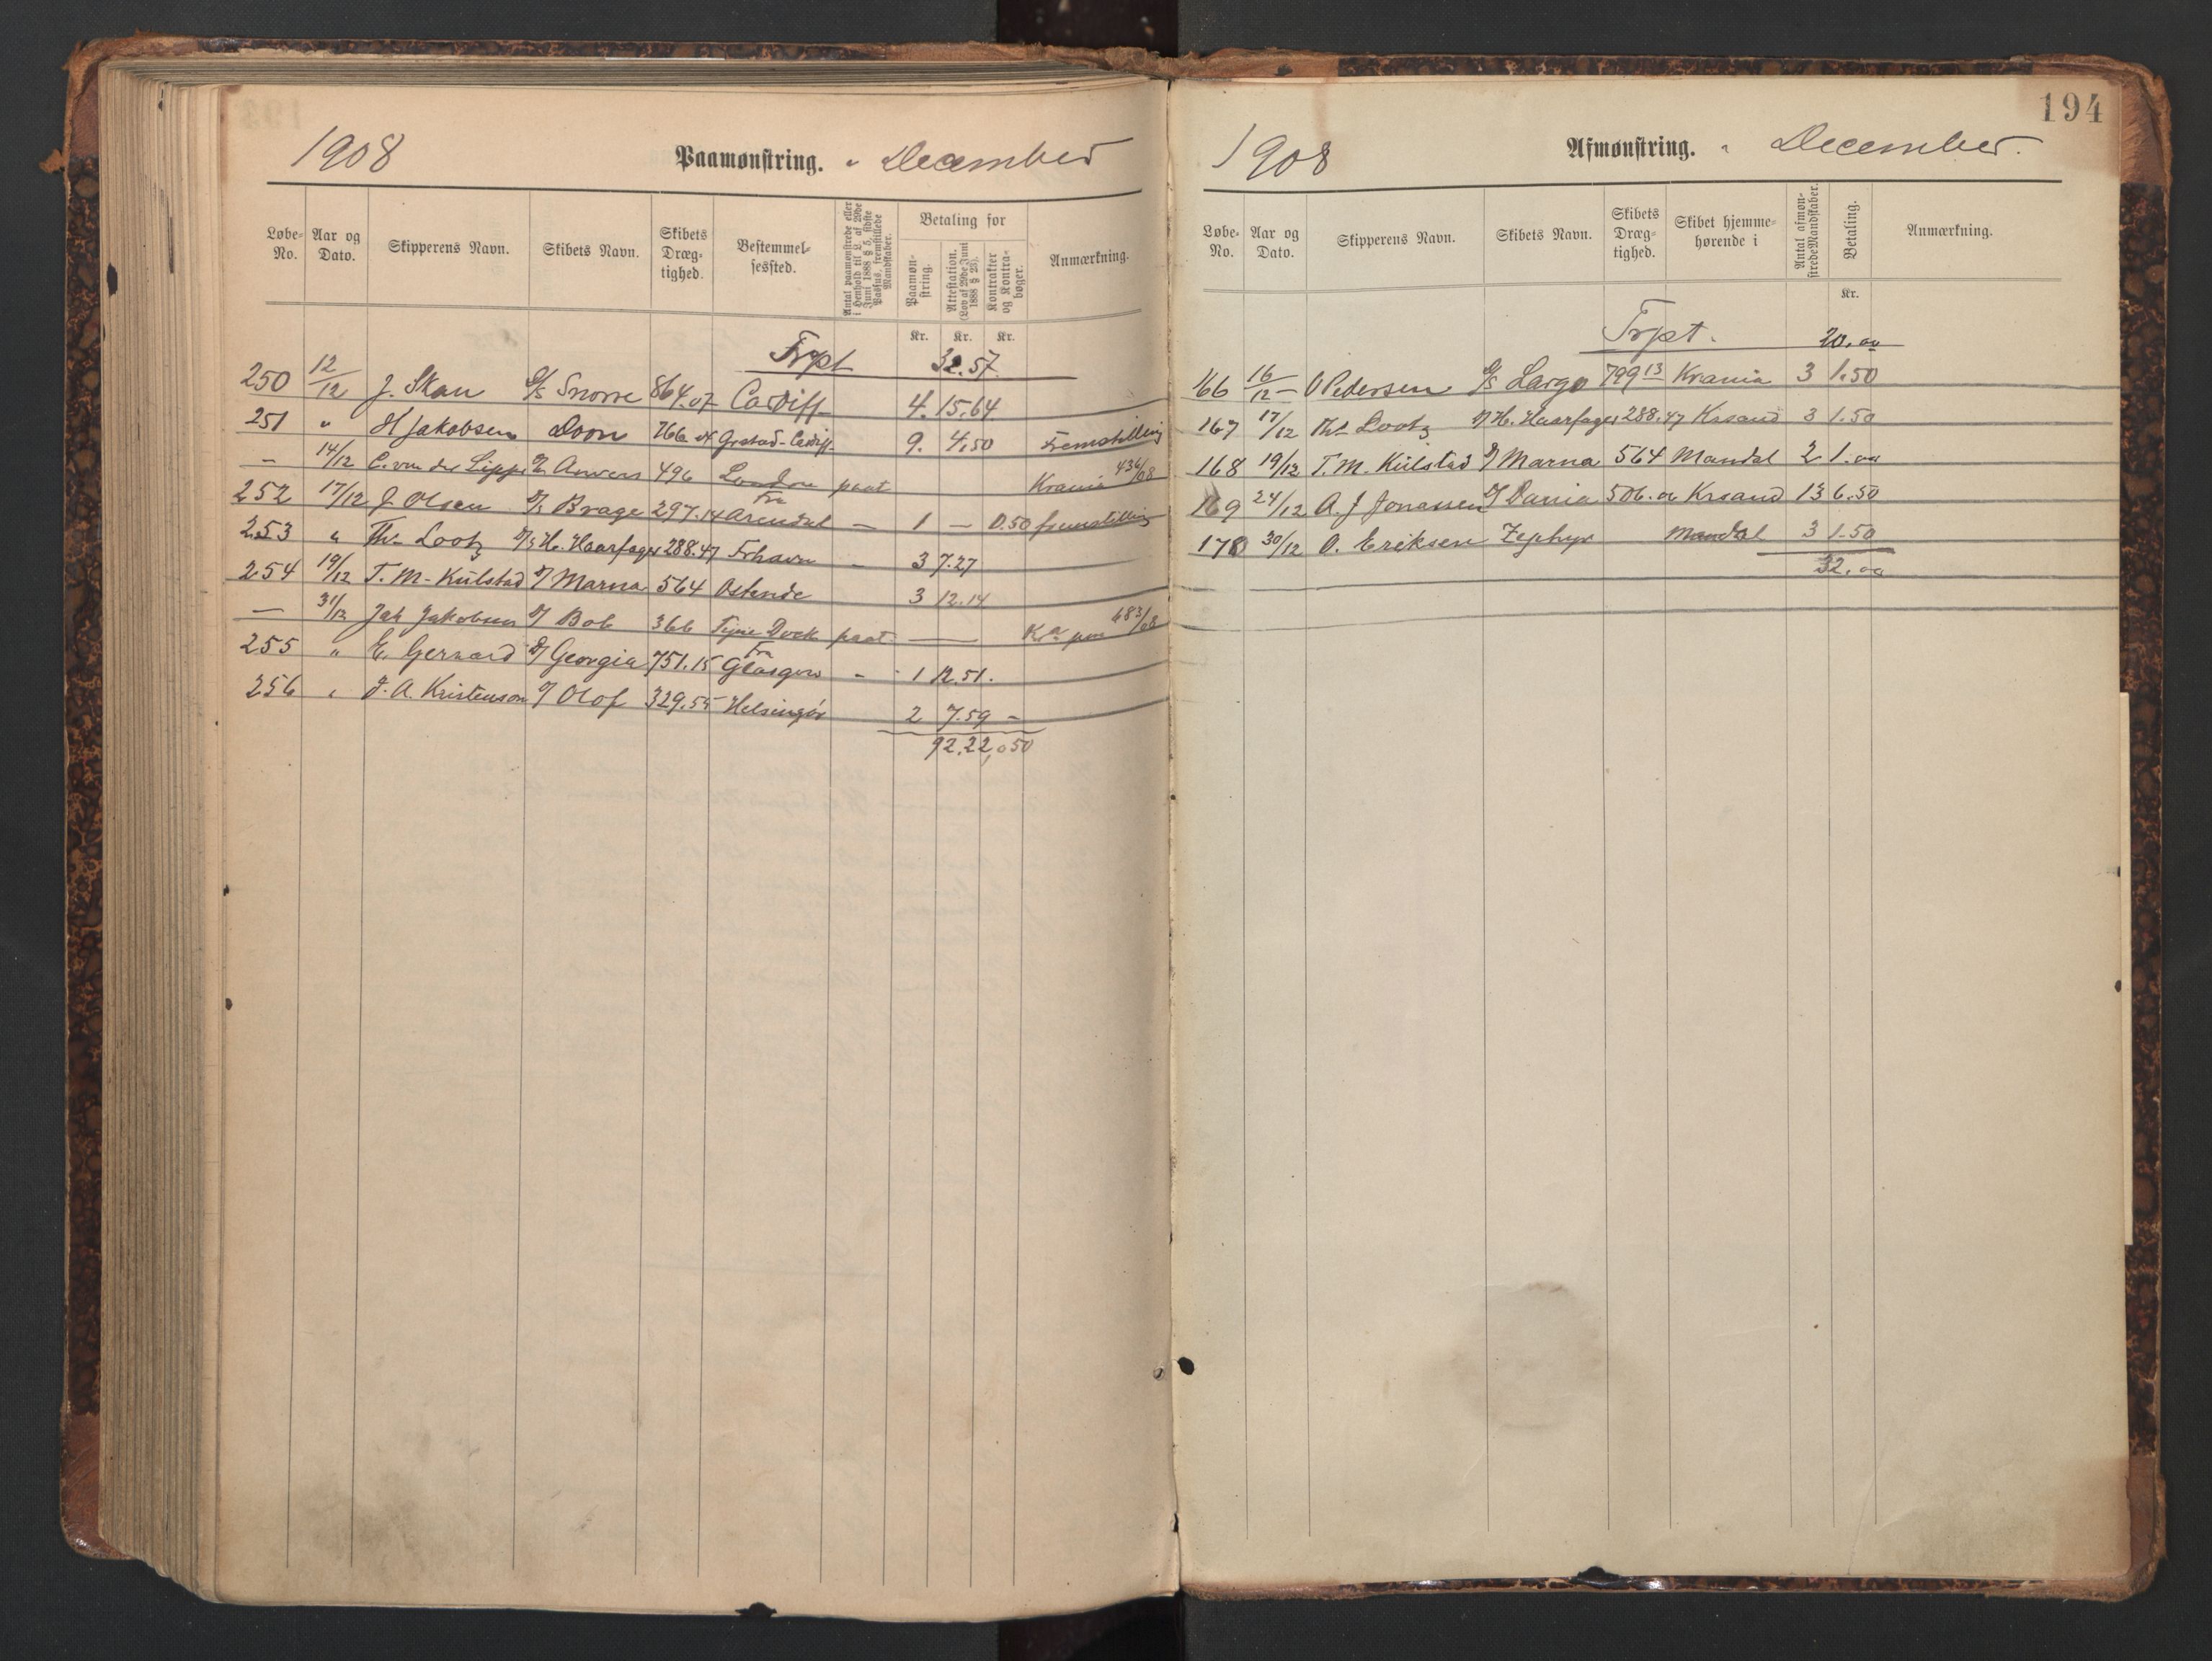 1908 Paamønstring. " December
Løbe-No. Aar og Dato. Skipperens Navn. Skibets Navn. Skibets Dræg-tighed. Bestemmel-sessted. Antal paamønstrede eller i Henhold til L. af 29de Juni 1888 § 5, sidste Passus, fremstillede Mandskaber. Betaling for Paamøn-string. Attestation. (Lov af 29de Juni 1888 § 23). Kontrakter og Kontra-bøger. Anmærkning.
Kr. Kr. Kr.
Trpt 32.57
250 12/12 J. Skau S/S Snorre 864.07 Cardiff 4. 15.64
251 " H Jakobsen Doon 766 Grstad-Cardiff 9. 4.50 Fremstilling
— 14/12 C. von der Lippe Anvers 496 London paat Krania 436/08
252 17/12 J. Olsen Brage 297.14 Fra Arendal — 1 — 0.50 fremstilling
253 " Thv. Lootz D/S H. Haarfager 288.47 Frhavn — 3 7.27
254 19/12 T. M. Kulstad Marna 564 Ostende 3 12.14
— 31/12 Jak Jakobsen Bob 366 Tyne Dock paat — 683/08
255 " E. Gerrard Georgia 751.15 Fra Glasgow - 1 12.51.
256 " J. A. Kristenson Olof 329.55 Helsingør 2 7.59 —
92.22, 0.50
194
1908 Afmønstring. " December.
Løbe-No. Aar og Dato. Skipperens Navn. Skibets Navn. Skibets Dræg-tighed. Skibet hjemme-hørende i Antal afmøn-strede Mandskaber. Betaling. Anmærkning.
Kr.
Trpt. 20.00
166 16/12 — O Pedersen S/S Largo 799 13 Krania 3 1.50
167 17/12 Thv. Lootz H. Haarfager 288.47 Krsand 3 1.50
168 19/12 T. M. Kulstad Marna 564 Mandal 2 1.00
169 24/12 A. J Jonassen Dania 506.06 Krsand 13 6.50
170 30/12 O. Eriksen Zephyr Mandal 3 1.50
32.00